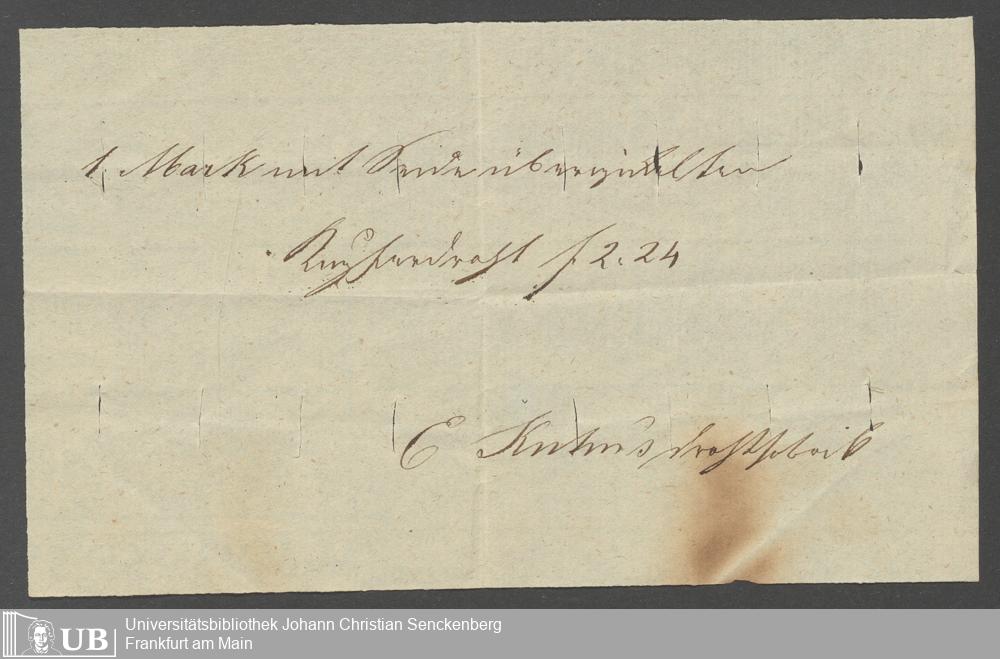 1. Mark mit Seide übersponnelten
Kupferdraht f 2. 24
E Kuhn's Drahtfabrik
UB
Universitätsbibliothek Johann Christian Senckenberg
Frankfurt am Main